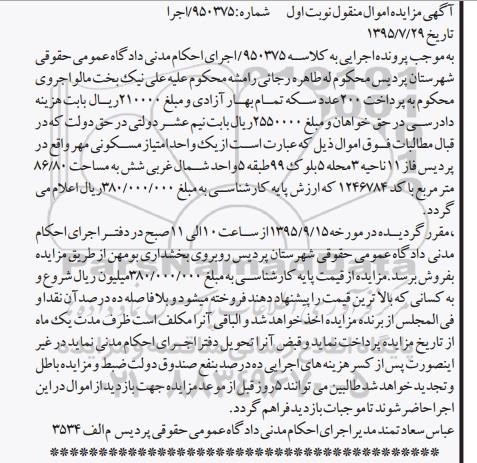 آگهی مزایده اموال منقول نوبت اول     شماره: ۹۵۰۳۷۵/اجرا
تاریخ ۱۳۹۵/۷/۲۹
به موجب پرونده اجرایی به کلاسه ۹۵۰۳۷۵/اجرای احکام مدنی دادگاه عمومی حقوقی
شهرستان پردیس محکوم له طاهره رجائی رامشه محکوم علیه علی نیک بخت مالواجروی
محکوم به پرداخت ۲۰۰ عدد سکه تمام بهار آزادی و مبلغ ۲۱۰۰۰۰ ریال بابت هزینه
دادرسی در حق خواهان و مبلغ ۲۵۵۰۰۰۰ ریال بابت نیم عشر دولتی در حق دولت که در
قبال مطالبات فوق اموال ذیل که عبارت است از یک واحد امتیاز مسکونی مهر واقع در
پردیس فاز ۱۱ ناحیه ۳ محله ۵ بلوک ۹۹ طبقه ۵ واحد شمال غربی شش به مساحت ۸۶/۸۰
متر مربع با کد ۱۲۴۶۷۸۴ که ارزش پایه کارشناسی به مبلغ ۳۸۰/۰۰۰/۰۰۰ ریال اعلام می
گردد.
،مقرر گردیده در مورخه ۱۳۹۵/۹/۱۵ از ساعت ۱۰ الی ۱۱ صبح در دفتر اجرای احکام
مدنی دادگاه عمومی حقوقی شهرستان پردیس روبروی بخشداری بومهن از طریق مزایده
بفروش برسد. مزایده از قیمت پایه کارشناسی به مبلغ ۳۸۰/۰۰۰/۰۰۰ میلیون ریال شروع و
به کسانی که بالاترین قیمت را پیشنهاد دهند فروخته میشود و بلافاصله ده درصد آن نقدا و
فی المجلس از برنده مزایده اخذ خواهد شد و الباقی آنرا مکلف است ظرف مدت یک ماه
از تاریخ مزایده پرداخت نماید و قبض آنرا تحویل دفتر اجرای احکام مدنی نماید در غیر
اینصورت پس از کسر هزینه های اجرایی ده درصد بنفع صندوق دولت ضبط و مزایده باطل
و تجدید خواهد شد طالبین می توانند ۵ روز قبل از موعد مزایده جهت بازدید از اموال در این
اجرا حاضر شوند تا موجبات بازدید فراهم گردد.
عباس سعادتمند مدیر اجرای احکام مدنی دادگاه عمومی حقوقی پردیس م الف ۳۵۳۴